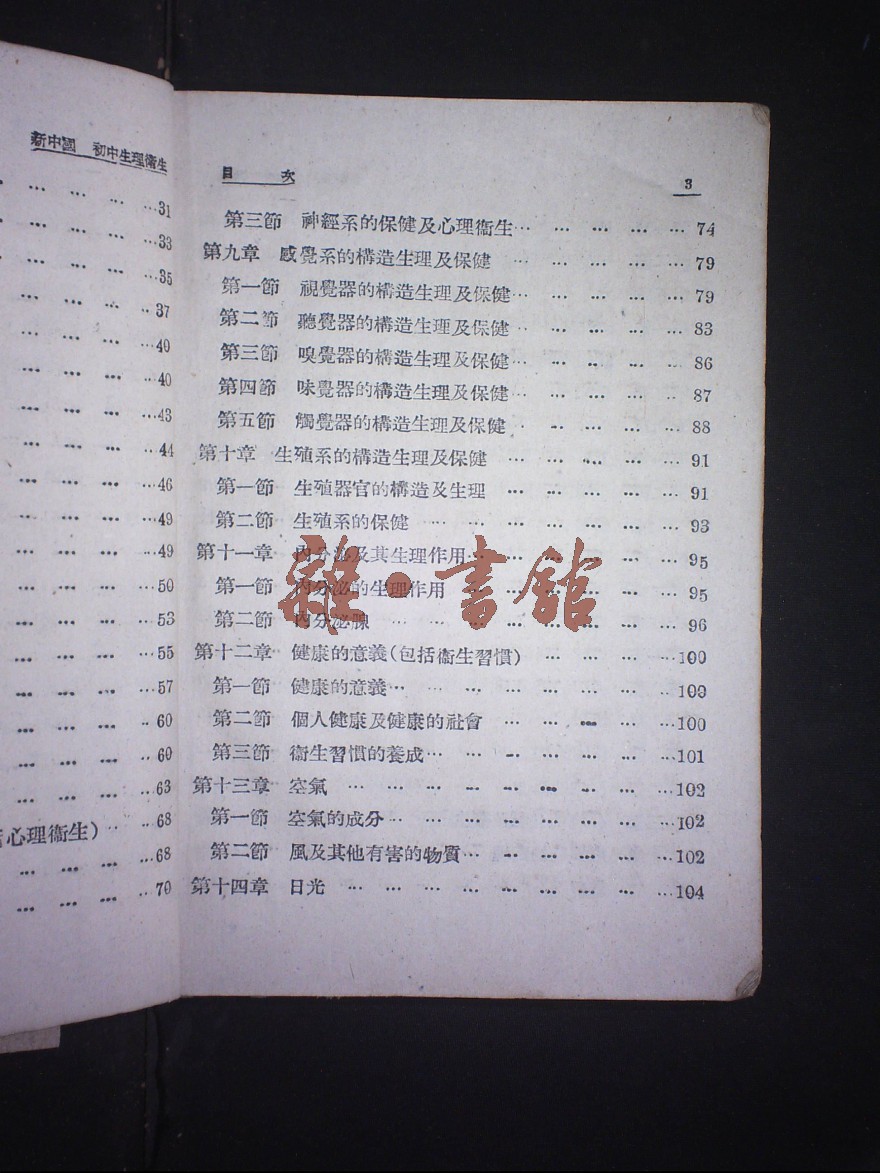 新中國 初中生理衞生
… … … …31
… … … …33
… … … …35
… … … ‥37
… … … …40
… … … …40
… … … …43
… … … …44
… … … …46
… … … …49
… … … …49
… … … …50
… … … …53
… … … …55
… … … …57
… … … ‥60
… … … ‥60
… … … …63
心理衞生)… ‥68
… … … …68
… … … ‥70
目 次 3
第三節 神經系的保健及心理衞生… … … … … 74
第九章 感覺系的構造生理及保健 … … … … … 79
第一節 視覺器的構造生理及保健… … … … … 79
第二節 聽覺器的構造生理及保健… … … … … 83
第三節 嗅覺器的構造生理及保健… … … … … 86
第四節 味覺器的構造生理及保健… … … … … 87
第五節 觸覺器的構造生理及保健… … … … … 88
第十章 生殖系的構造生理及保健 … … … … … 91
第一節 生殖器官的構造及生理 … … … … … 91
第二節 生殖系的保健 … … … … … … … 93
第十一章 內分泌及其生理作用… … … … … … 95
第一節 內分泌的生理作用 … … … … … … 95
第二節 內分泌腺 … … … … … … … … 96
第十二章 健康的意義(包括衞生習慣) … … … …100
第一節 健康的意義… … … … … … … …100
第二節 個人健康及健康的社會 … … … … …100
第三節 衞生習慣的養成… … … … … … …101
第十三章 空氣 … … … … … … … … …102
第一節 空氣的成分… … … … … … … …102
第二節 風及其他有害的物質… … … … … …102
第十四章 日光 … … … … … … … … …104
雜·書館